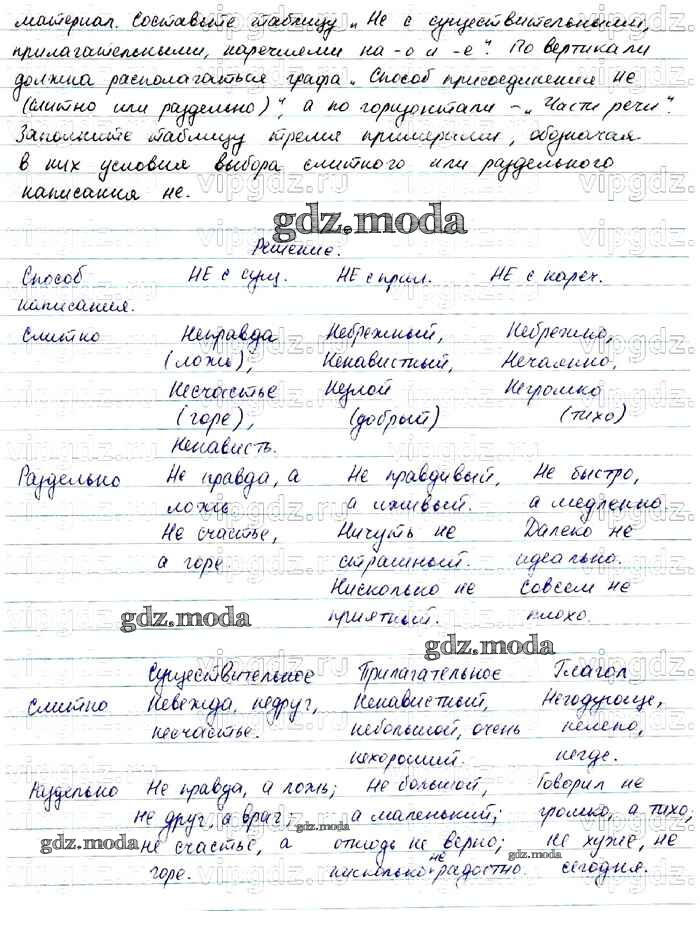 материал. Составьте таблицу „Не с существительными,
прилагательными, наречиями на -о и -е". По вертикали
должна располагаться графа „Способ присоединения не
(слитно или раздельно)", а по горизонтали – „Части речи".
Заполните таблицу тремя примерами, обозначая
в них условия выбора слитного или раздельного
написания не.
gdz.moda
Решение.
Способ НЕ с сущ. НЕ с прил. НЕ с нареч.
написания.
Слитно Неправда Небрежный, Небрежно,
(ложь), Ненавистный, Нечаянно,
Несчастье Незлой Негромко
(горе), (добрый) (тихо)
Ненависть.
Раздельно Не правда, а Не правдивый, Не быстро,
ложь. а лживый. а медленно
Не счастье, Ничуть не Далеко не
а горе страшный. идеально.
Нисколько не Совсем не
gdz.moda приятный. плохо.
gdz.moda
Существительное Прилагательное Глагол
Слитно Невежда, недруг, Ненавистный, Негодующе,
несчастье. небольшой, очень нелепо,
нехороший. негде.
Раздельно Не правда, а ложь; Не большой, Говорил не
не друг, а враг; а маленький; громко, а тихо;
gdz.moda не счастье, а отнюдь не верно; не хуже, не
горе. нисколько не радостно. сегодня.
gdz.moda
gdz.moda
vipgdz.ru